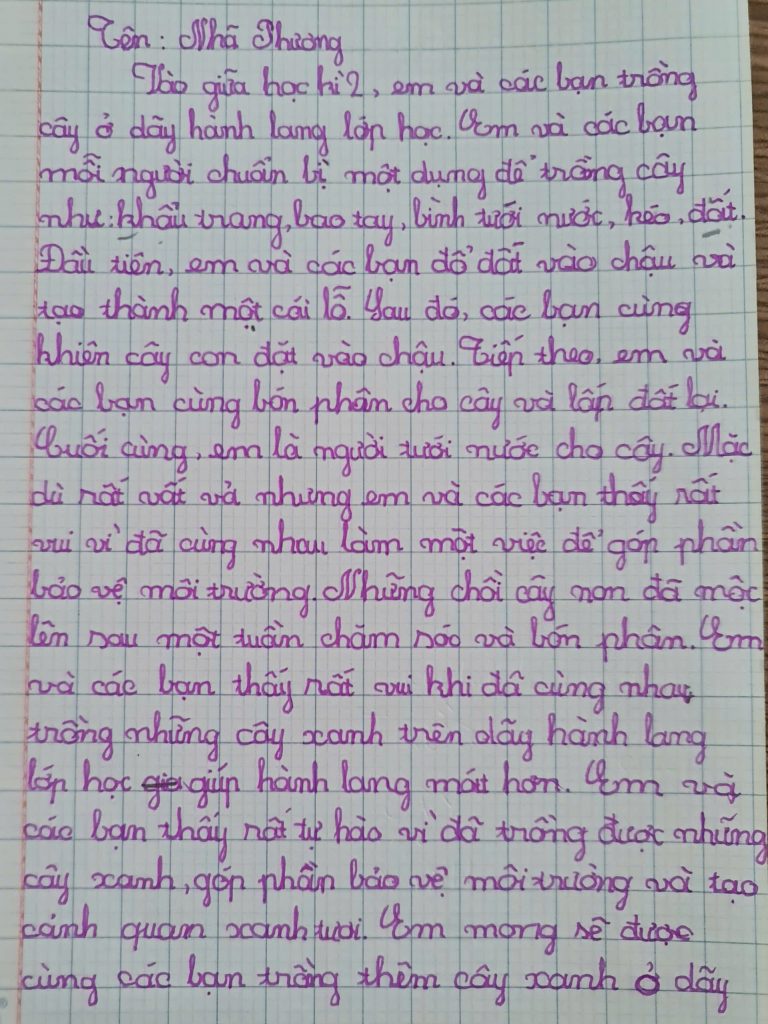 Tên: Nhã Phương
Vào giữa học kì 2, em và các bạn trồng
cây ở dãy hành lang lớp học. Em và các bạn
mỗi người chuẩn bị một dụng để trồng cây
như: khẩu trang, bao tay, bình tưới nước, kéo, đất.
Đầu tiên, em và các bạn đổ đất vào chậu và
tạo thành một cái lỗ. Sau đó, các bạn cùng
khiên cây con đặt vào chậu. Tiếp theo, em và
các bạn cùng bón phân cho cây và lấp đất lại.
Cuối cùng, em là người tưới nước cho cây. Mặc
dù rất vất vả nhưng em và các bạn thấy rất
vui vì đã cùng nhau làm một việc để góp phần
bảo vệ môi trường. Những chồi cây non đã mộc
lên sau một tuần chăm sóc và bón phân. Em
và các bạn thấy rất vui khi đã cùng nhau
trồng những cây xanh trên dãy hành lang
lớp học giúp hành lang mát hơn. Em và
các bạn thấy rất tự hào vì đã trồng được những
cây xanh, góp phần bảo vệ môi trường và tạo
cảnh quan xanh tươi. Em mong sẽ được
cùng các bạn trồng thêm cây xanh ở dãy